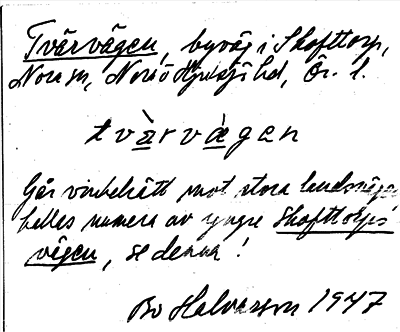 Tvärvägen, byväg i Skofttorp,
Nora sn, Nora o Hjulsjö hd, Ör. l.
tvàrvàgen
Går vinkelrätt mot stora landsvägen
kallas numera av yngre Skofttorps-
vägen, se denna!
Bo Halvarson 1947